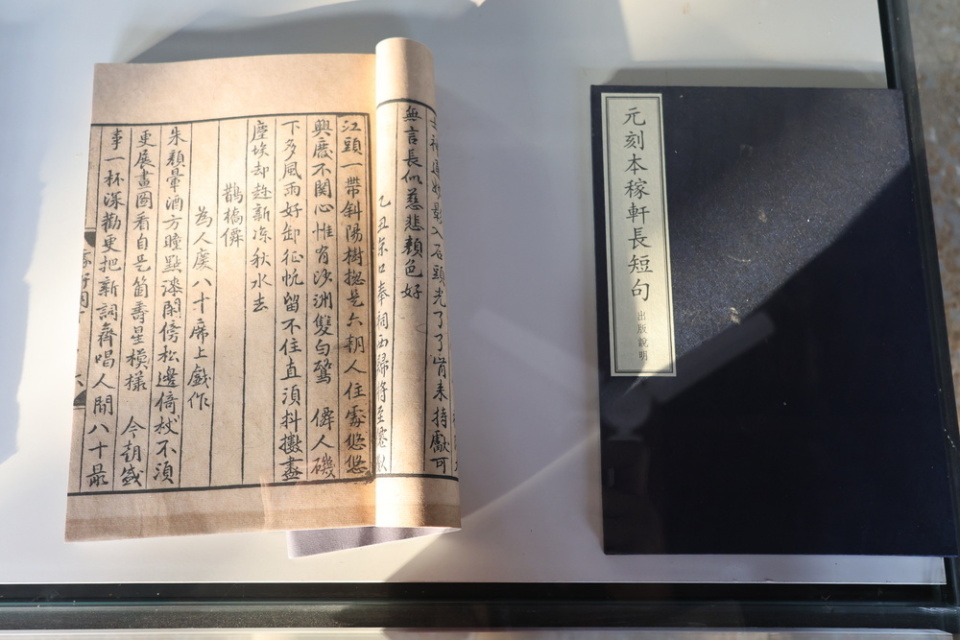 石頭光了了
無言長似慈悲顏色好
乙丑京口奉祠西歸將至
江頭一帶斜陽樹揔是六朝人住處悠悠
興廢不關心惟有沙洲雙白鷺 僊人磯
下多風雨好卸征帆留不住直湏抖擻盡
塵埃却趁新涼秋水去
鵲橋僊
為人慶八十席上戲作
朱顏暈酒方瞳點漆閑傍松邊倚杖不湏
更展畫圖看自是箇壽星模樣 今朝盛
事一杯深勸更把新詞齊唱人間八十最
元刻本稼軒長短句
出版說明